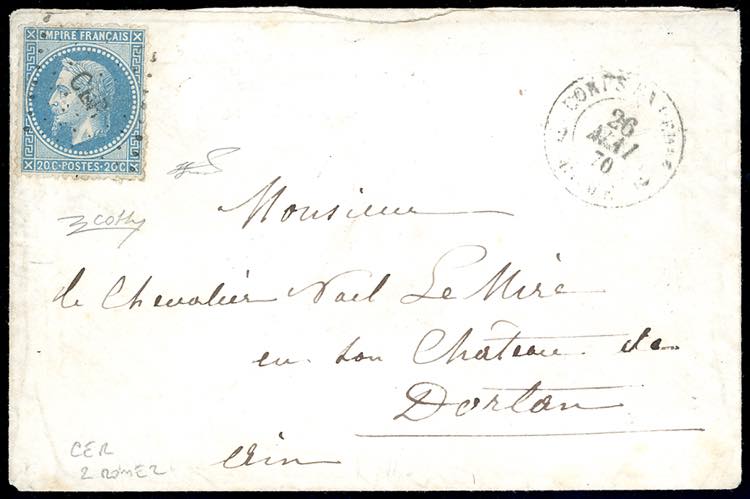 EMPIRE FRANÇAIS
CER
20C-POSTES-20C
26
MAI
70
Monsieur
le Chevalier Noël Le Mire
en son Château de
Dortan
Ain
CER
2 ROME 2